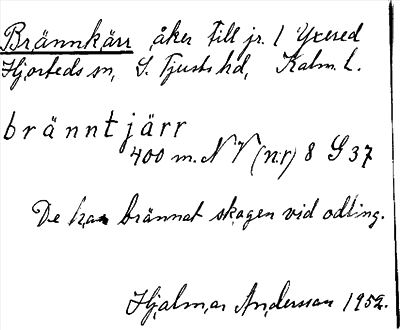 Brännkärr åker till jr. 1 Yxered
Hjorteds sn, S. Tjusts hd, Kalm. l.
bränntjärr
400 m. NV (nr) 8 G 37
De har brännat skogen vid odling.
Hjalmar Andersson 1952.